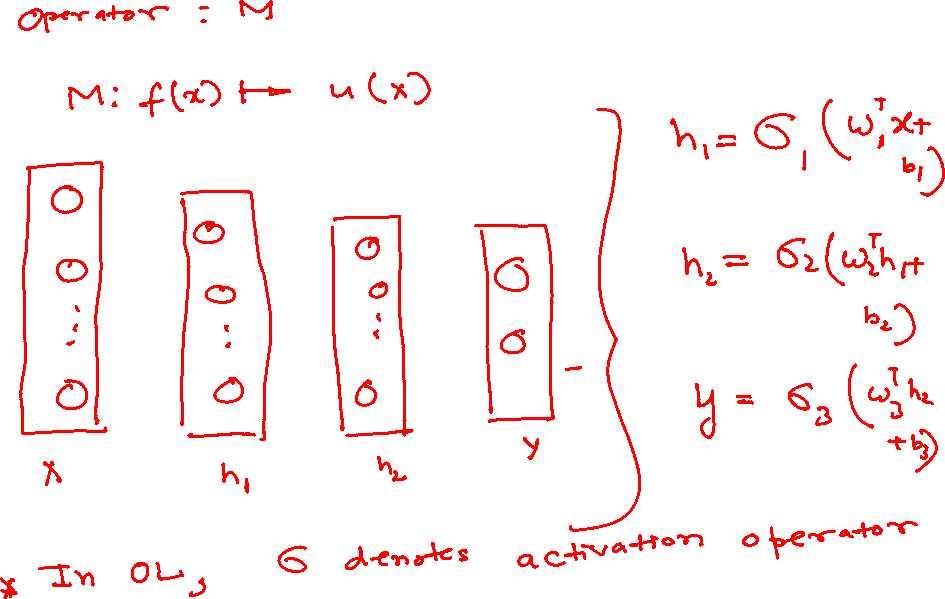 Operator : M
M: f(x) ↦ u(x)
h₁ = σ₁ (ω₁ᵀx +
b₁)
h₂ = σ₂(ω₂ᵀh₁ +
b₂)
y = σ₃ (ω₃ᵀh₂
+ b₃)
x h₁ h₂ y
* In OL, σ denotes activation operator